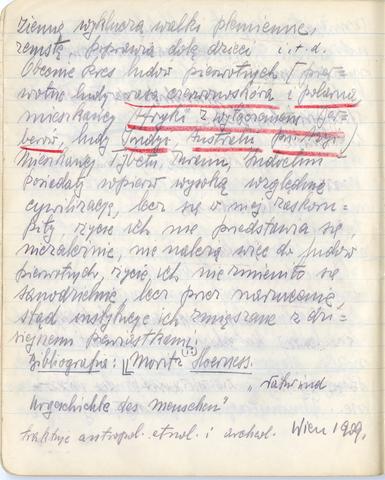 ziennę wyklucza walki plemienne,
zemstę, poprawia dolę dzieci i.t.d.
Obecnie kres ludów pierwotnych [pier=
wotne ludy rasa czerwonoskóra i polarna
mieszkańcy Afryki z wyłączeniem Ber=
berów, ludy Indyj, Australii
mieszkańcy Tybetu, Iranu, Indochin
posiedli wysoką względnie
cywilizację, lecz się w niej zaskoru=
piły, życie ich nie przedstawia się
niezależnie, nie należą więc do ludów
pierwotnych, życie ich nie zmieniło się
samodzielnie, lecz przez narzucenie,
stąd instytucje ich zmieszane z dzi=
siejszem
Bibliografia: Moritz Hoerness.
„Natur und
Urgeschichte des Menschen"
traktuje antropol. etnol. i archeol. Wien 1909.